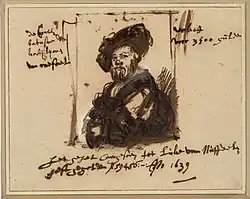 de Conte
batasar de
kastijlijone
van raefael
verkoft
voor 3500 gulden
het geheel caergesoen tot Luke van Nuffeelen
heeft gegolden f 59456:- Ano 1639